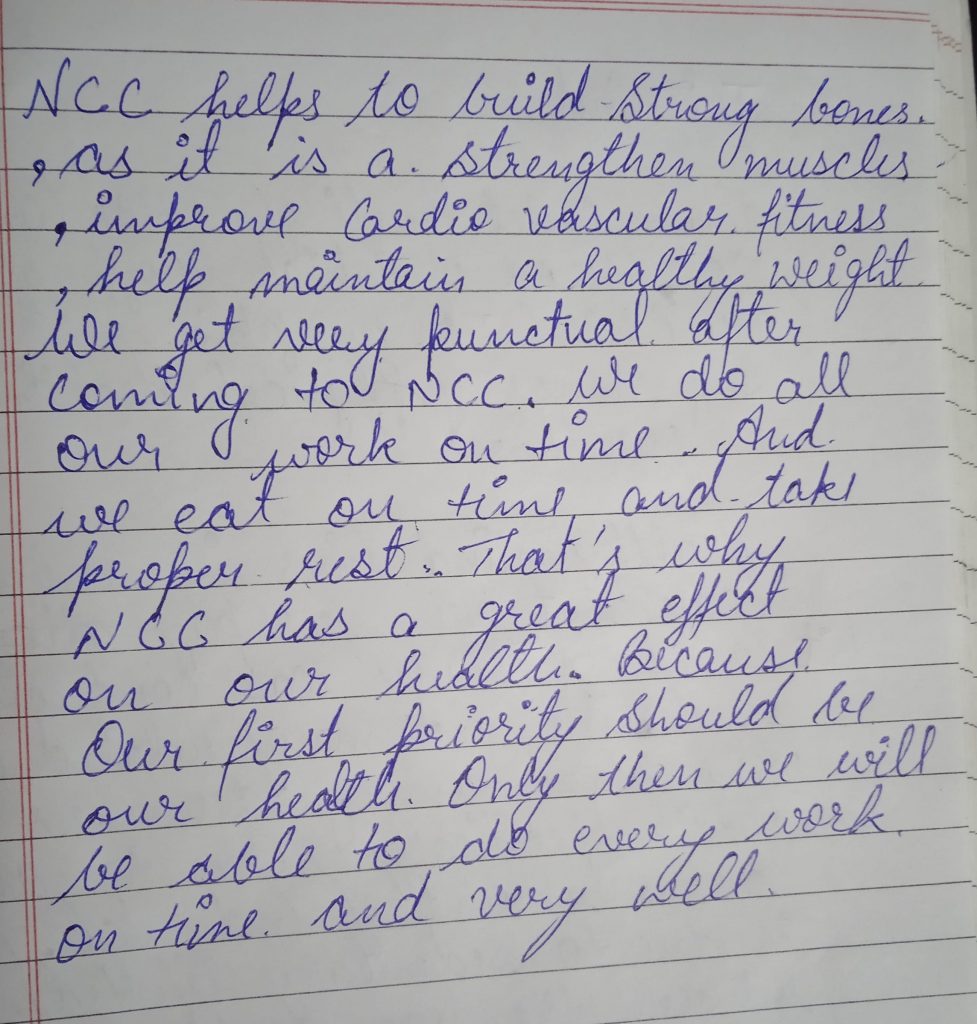 NCC helps to build strong bones.
, as it is a. strengthen muscles
, improve Cardio vascular. fitness
, help maintain a healthy weight.
We get very punctual after
coming to NCC. We do all
our work on time. And.
we eat on time and take
proper rest.. That's why
NCC has a great effect
on our health. Because
Our first priority should be
our health. Only then we will
be able to do every work.
on time. and very well.